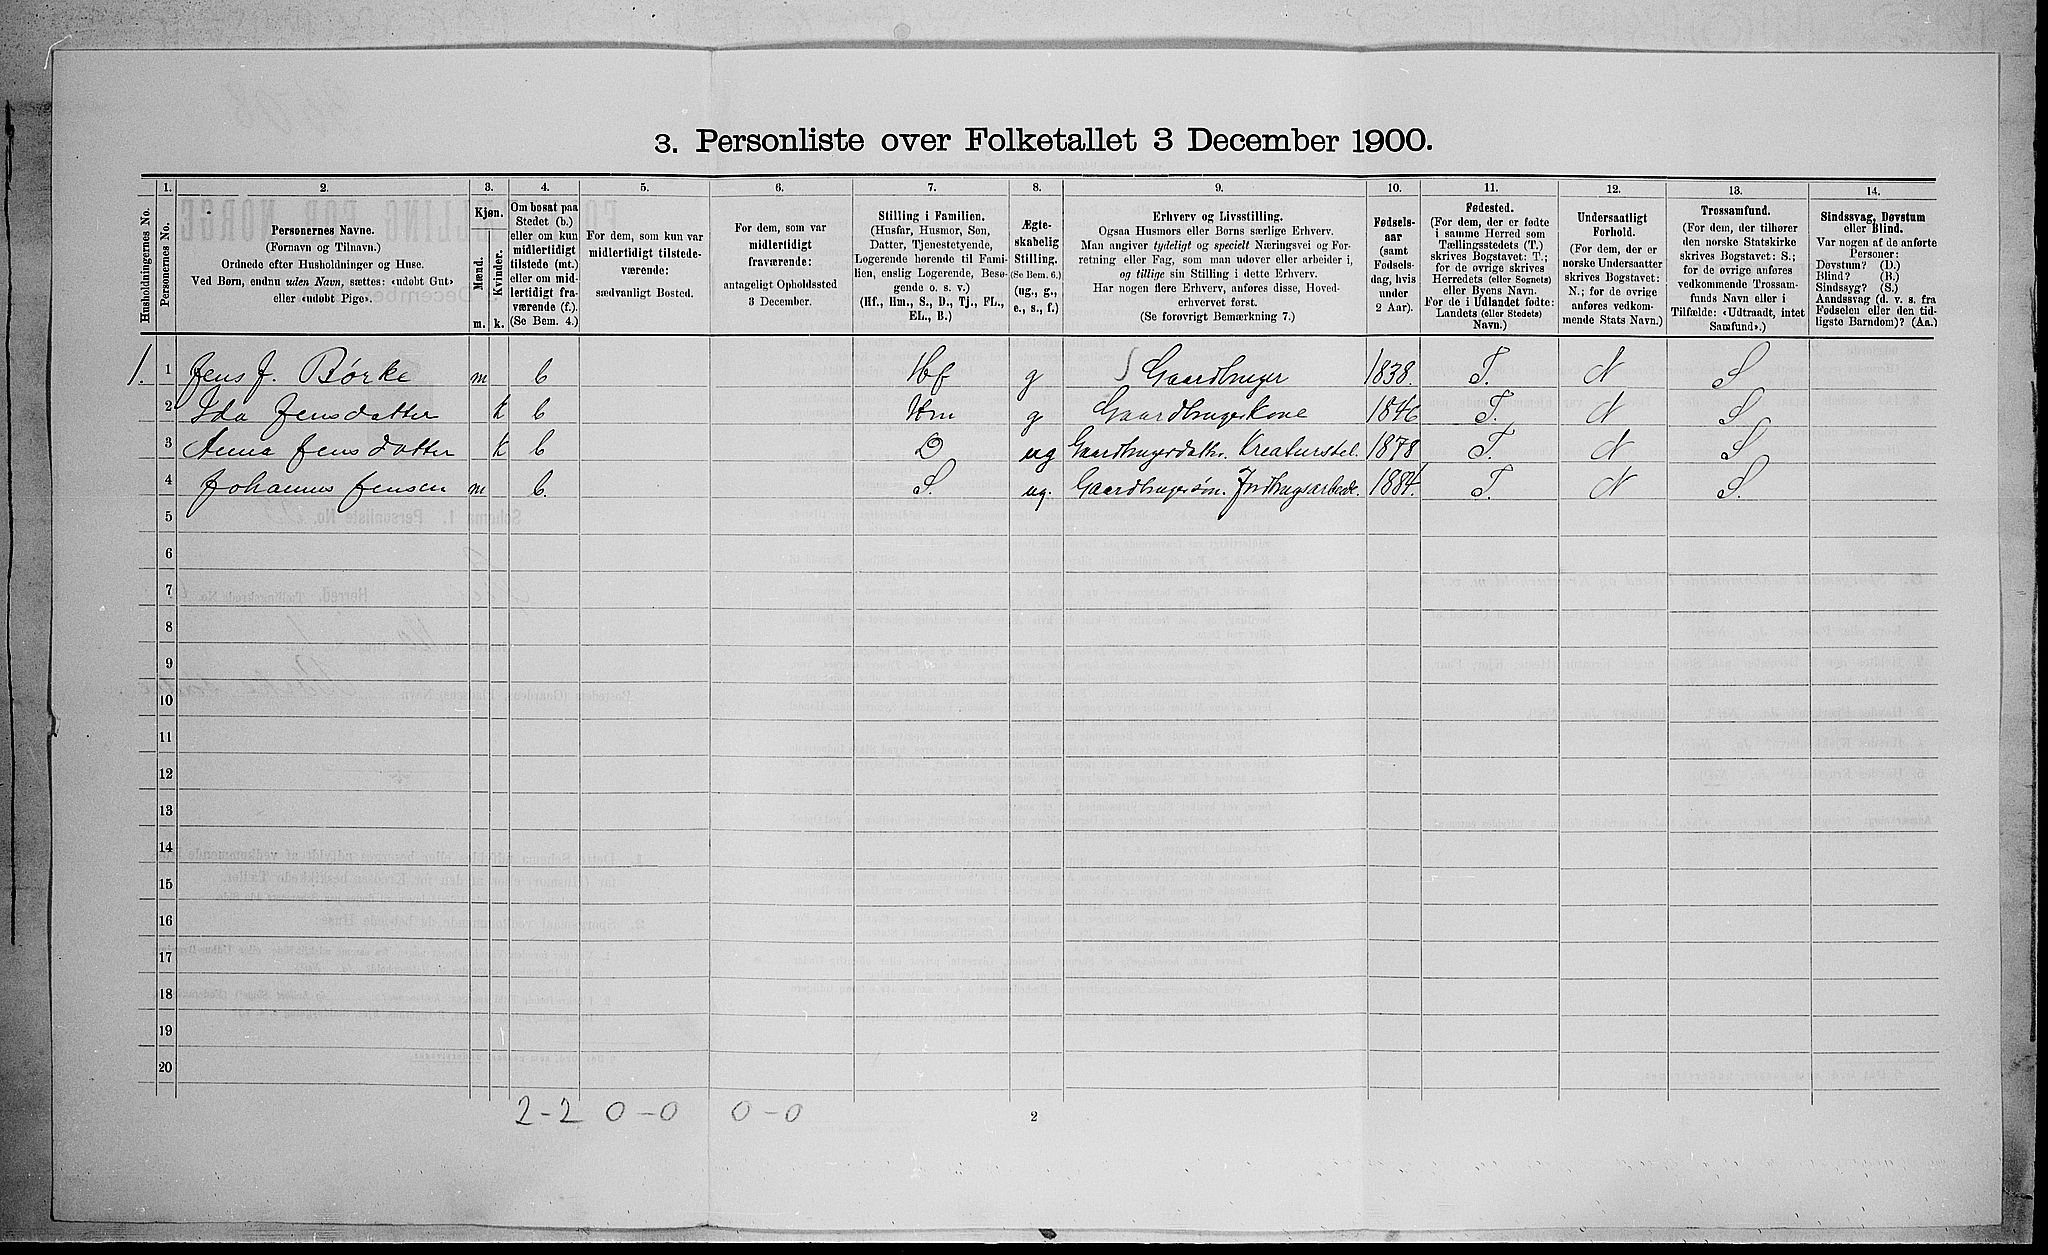 3. Personliste over Folketallet 3 December 1900.
Husholdningernes No.
1. Personernes No.
2. Personernes Navne. (Fornavn og Tilnavn.) Ordnede efter Husholdninger og Huse. Ved Børn, endnu uden Navn, sættes: «udøbt Gut» eller «udøbt Pige».
3. Kjøn. Mænd. Kvinder. m. k.
4. Om bosat paa Stedet (b.) eller om kun midlertidigt tilstede (mt.) eller om midlertidigt fraværende (f.). (Se Bem. 4.)
5. For dem, som kun var midlertidigt tilstedeværende: sædvanligt Bosted.
6. For dem, som var midlertidigt fraværende: antageligt Opholdssted 3 December.
7. Stilling i Familien. (Husfar, Husmor, Søn, Datter, Tjenestetyende, Logerende hørende til Familien, enslig Logerende, Besøgende o. s. v.) (Hf., Hm., S., D., Tj., FL., EL., B.)
8. Ægteskabelig Stilling. (Se Bem. 6.) (ug., g., e., s., f.)
9. Erhverv og Livsstilling. Ogsaa Husmors eller Børns særlige Erhverv. Man angiver tydeligt og specielt Næringsvei og Forretning eller Fag, som man udover eller arbeider i, og tillige sin Stilling i dette Erhverv. Har nogen flere Erhverv, anføres disse, Hovederhvervet først. (Se forøvrigt Bemærkning 7.)
10. Fødselsaar (samt Fødselsdag, hvis under 2 Aar).
11. Fødested. (For dem, der er fødte i samme Herred som Tællingsstedets (T.) skrives Bogstavet: T.; for de øvrige skrives Herredets (eller Sognets) eller Byens Navn. For de i Udlandet fødte: Landets (eller Stedets) Navn.)
12. Undersaatligt Forhold. (For dem, der er norske Undersaatter skrives Bogstavet: N.; for de øvrige anføres vedkommende Stats Navn.)
13. Trossamfund. (For dem, der tilhører den norske Statskirke skrives Bogstavet: S.; for de øvrige anføres vedkommende Trossamfunds Navn eller i Tilfælde: «Udtraadt, intet Samfund».)
14. Sindssvag, Døvstum eller Blind. Var nogen af de anførte Personer: Døvstum? (D.) Blind? (B.) Sindssyg? (S.) Aandssvag (d. v. s. fra Fødselen eller den tidligste Barndom)? (Aa.)
1. 1 Jens J. Børke m b Hf g Gaardbruger 1838. T. N S
2 Ida Jensdatter k b Hm g Gaardbrugerkone 1846 T. N S
3 Anna Jensdatter k b D ug Gaardbrugerdattr. Kreaturstel. 1878 T. N S
4 Johannes Jensen m b. S. ug. Gaardbrugersøn. Jordbrugsarbeide. 1884. T. N S.
5
6
7
8
9
10
11
12
13
14
15
16
17
18
19
20
2-2 0-0 0-0
2